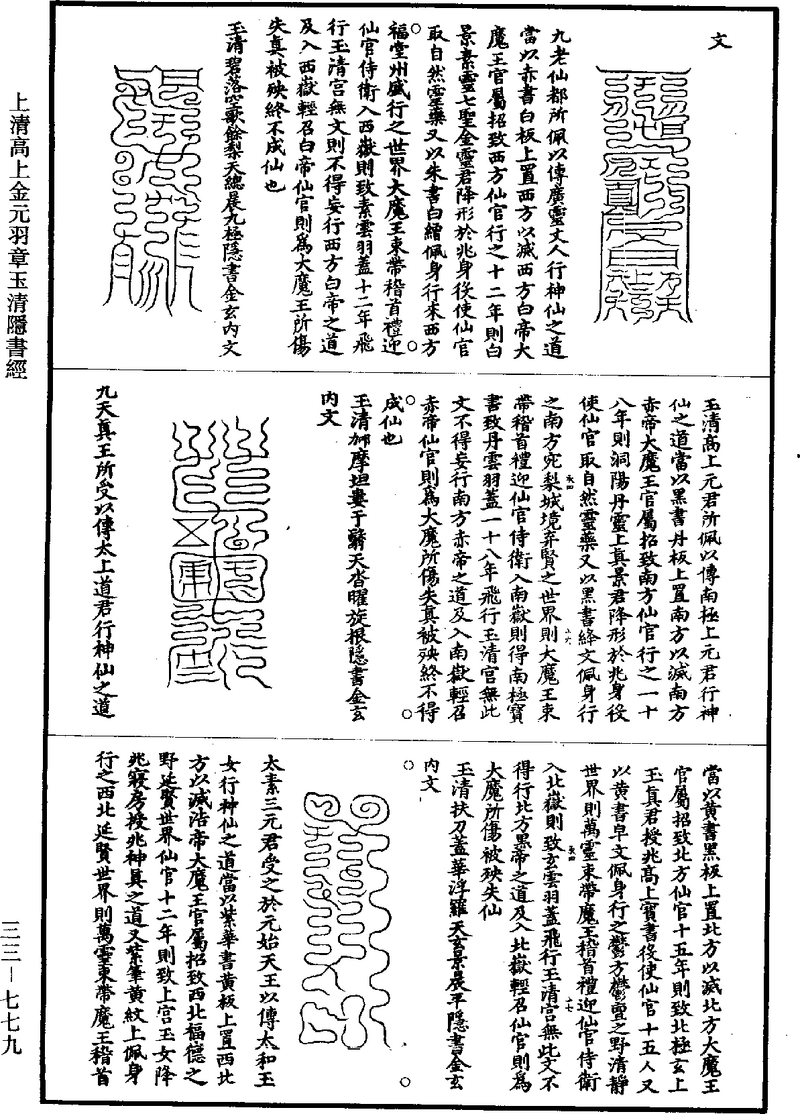 上清高上金元羽章玉清隱書經
三三－七七九
文
九老仙都所佩以傳廣靈丈人行神仙之道
當以赤書白板上置西方以滅西方白帝大
魔王官屬招致西方仙官行之十二年則白
景素靈七聖金靈君降形於兆身後使仙官
取自然靈藥又以朱書白繒佩身行來西方
福堂州盛行之世界大魔王束帶稽首禮迎
仙官侍衛入西嶽則致素雲羽蓋十二年飛
行玉清宮無文則不得妄行西方白帝之道
及入西嶽輕召白帝仙官則爲大魔王所傷
失真被殃終不成仙也
玉清碧落空歌餘梨天總晨九極隱書金玄內文
玉清高上元君所佩以傳南極上元君行神
仙之道當以黑書丹板上置南方以滅南方
赤帝大魔王官屬招致南方仙官行之一十
八年則洞陽丹靈上真景君降形於兆身後
使仙官取自然靈藥又以黑書絳文佩身行
之南方宛梨城境弃賢之世界則大魔王束
帶稽首禮迎仙官侍衛入南嶽則得南極寶
書致丹雲羽蓋一十八年飛行玉清宮無此
文不得妄行南方赤帝之道及入南嶽輕召
赤帝仙官則爲大魔所傷失真被殃終不得
成仙也
玉清加摩坦婁于翳天沓曜旋根隱書金玄
內文
九天真王所受以傳太上道君行神仙之道
當以黃書黑板上置北方以滅北方大魔王
官屬招致北方仙官十五年則致北極玄上
玉真君授兆高上寶書後使仙官十五人又
以黃書皁文佩身行之鬱方鬱靈之野清靜
世界則萬靈束帶魔王稽首禮迎仙官侍衛
入北嶽則致玄雲羽蓋飛行玉清宮無此文不
得行北方黑帝之道及入北嶽輕召仙官則爲
大魔所傷被殃失仙
玉清扶刀蓋華浮羅天玄景晨平隱書金玄
內文
太素三元君受之於元始天王以傳太和玉
女行神仙之道當以紫華書黃板上置西北
方以滅浩帝大魔王官屬招致西北福德之
野延賢世界仙官十二年則致上宮玉女降
兆寢房授兆神真之道又紫筆黃紋上佩身
行之西北延賢世界則萬靈束帶魔王稽首